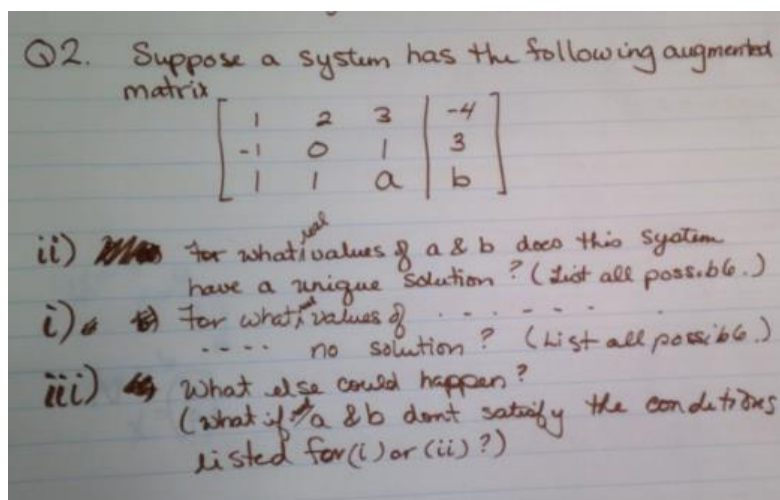 Q2. Suppose a system has the following augmented
matrix
1 2 3 | -4
-1 0 1 | 3
1 1 a | b
ii) For what real values of a & b does this system
have a unique solution? (List all possible.)
i) For what real values of . . . . . . .
. . . . no solution? (List all possible.)
iii) What else could happen?
(what if a & b dont satisfy the conditions
listed for (i) or (ii)?)